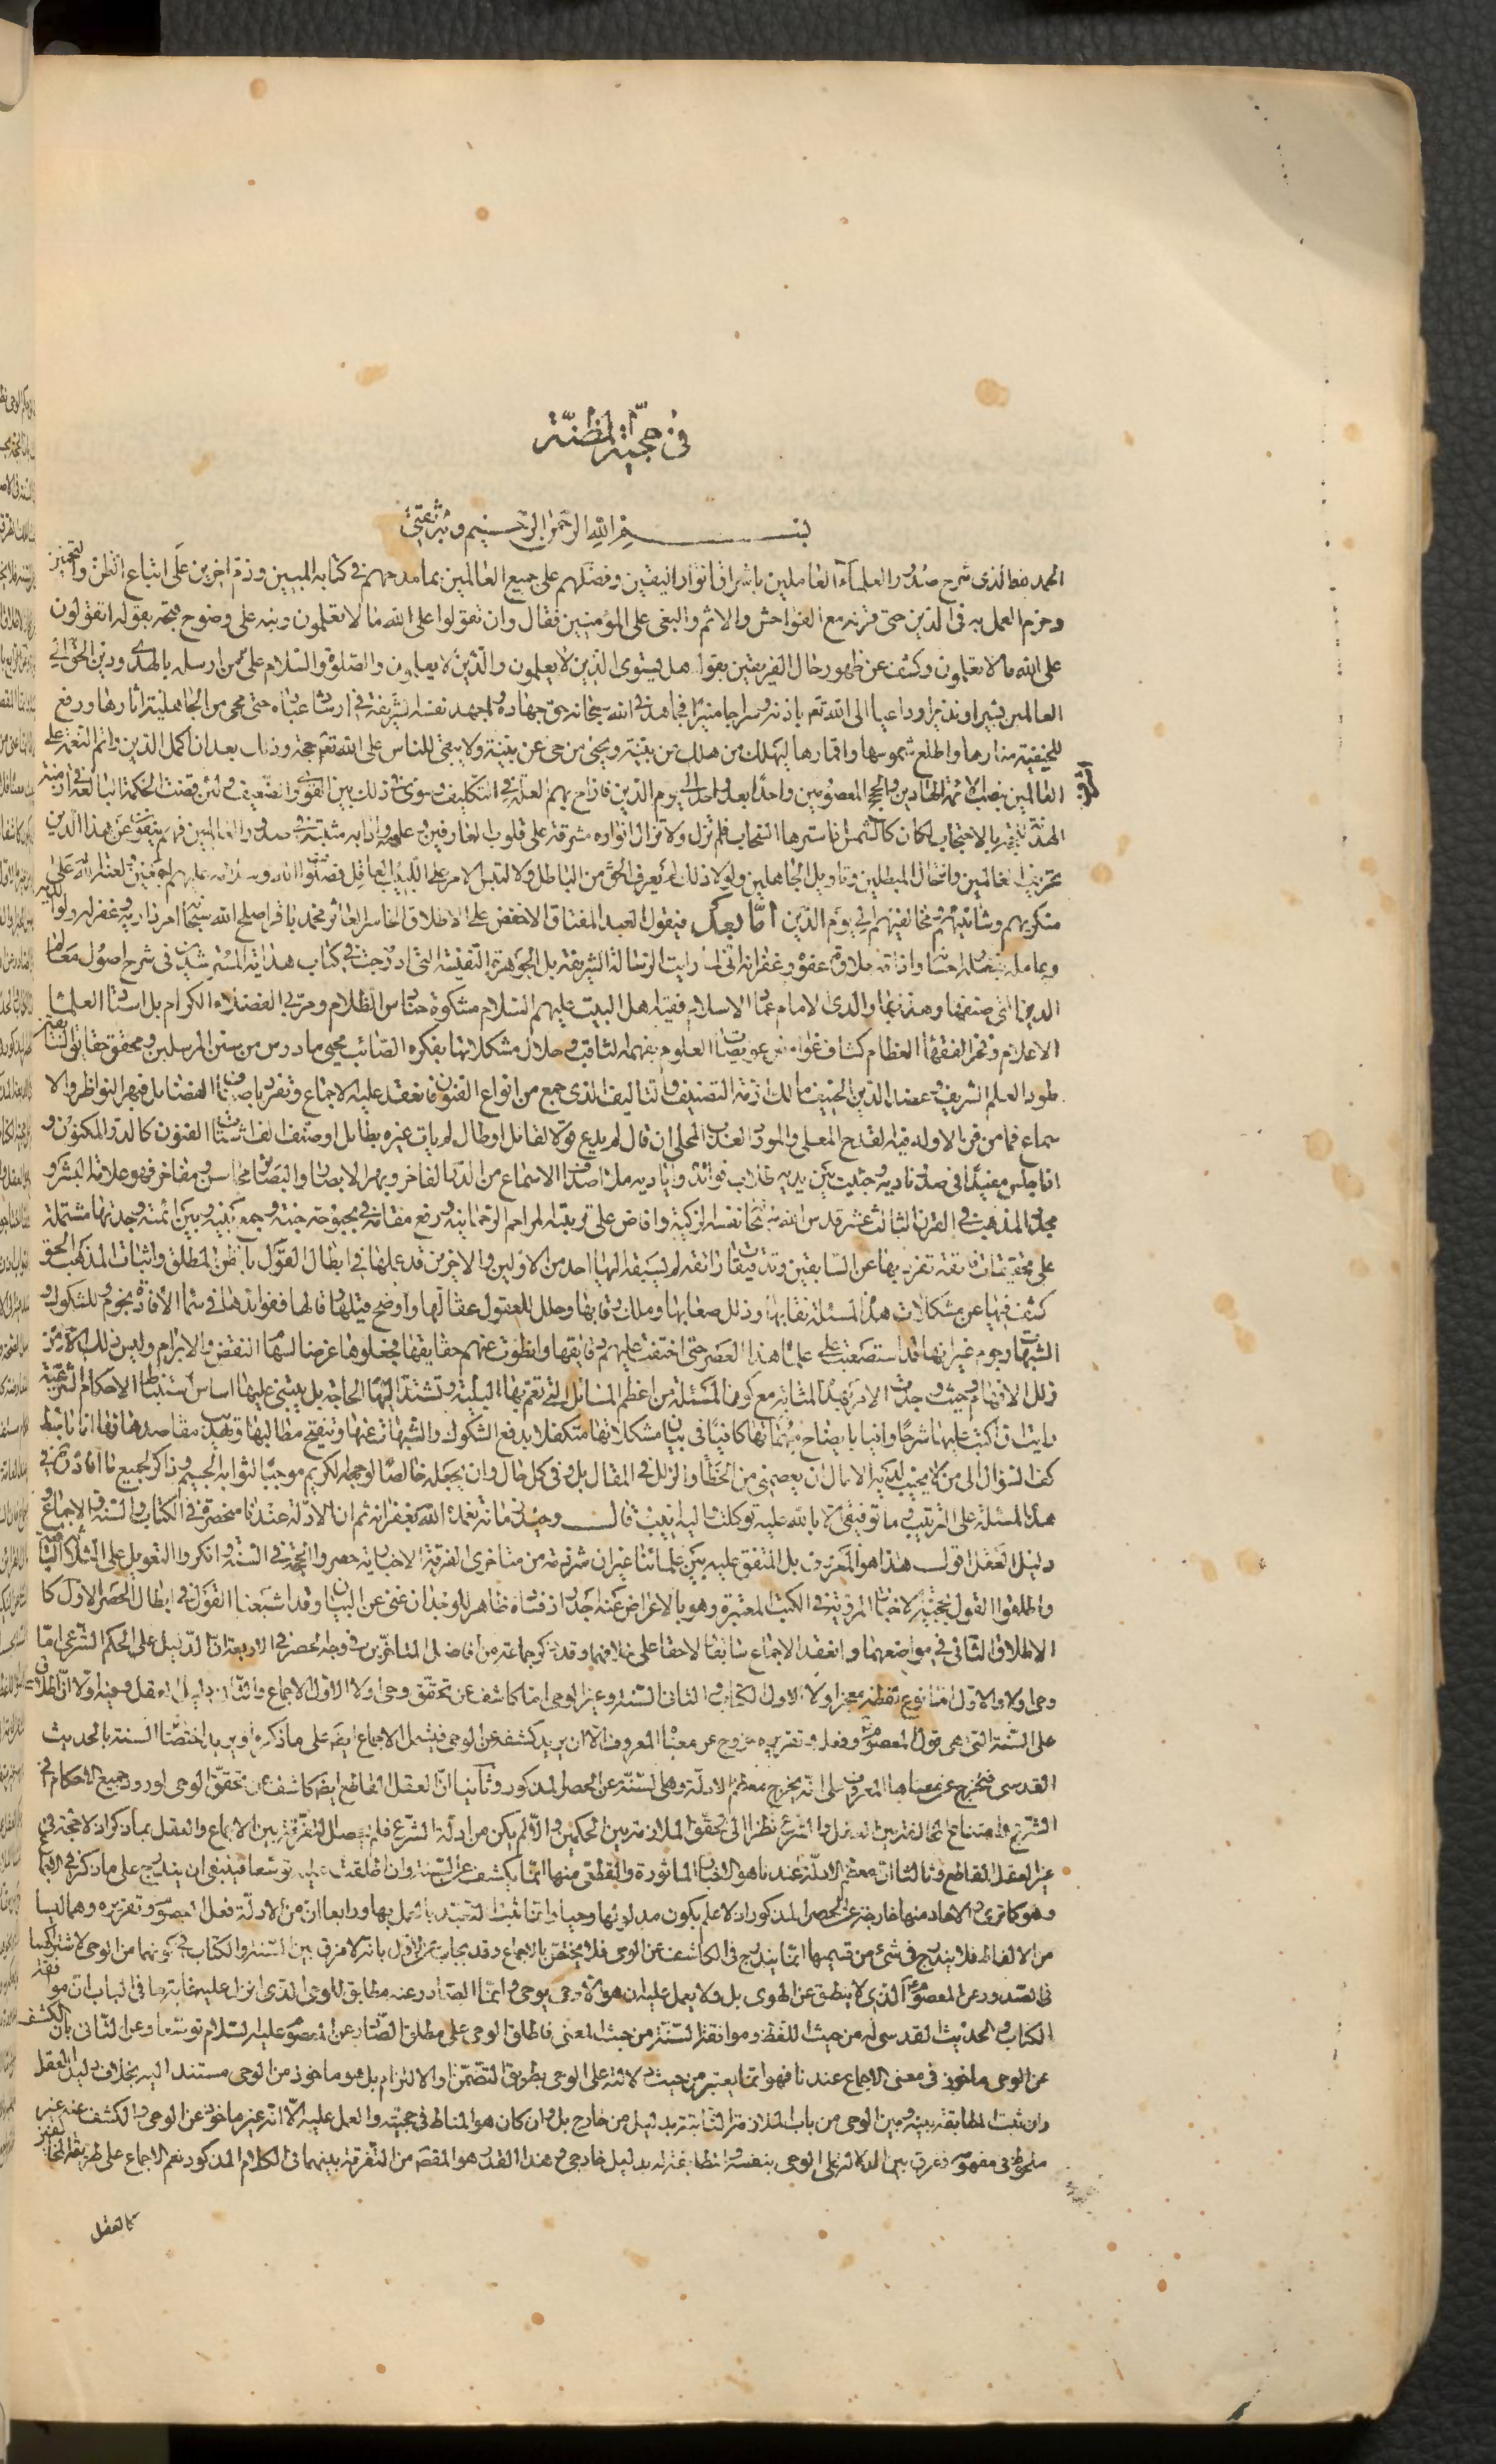 في حجية المظنة
بسم الله الرحمن الرحيم وبه ثقتي
الحمد لله الذى شرح صدور العلمآء العاملين باشراق انوار اليقين وفضلهم على جميع العالمين بما مدحهم في كتابه المبين وذم اخرين على اتباع الظن والتخمين
وحرم العمل به فى الدين حتى قرنه مع الفواحش والاثم والبغى على المؤمنين فقال وان تقولوا على الله ما لا تعلمون ونبه على وضوح حجته بقوله اتقولون
على الله ما لا تعلمون وكشف عن ظهور حال الفريقين بقوله هل يستوى الذين يعلمون والذين لا يعلمون والصلوة والسلام على من ارسله بالهدى ودين الحق الى
العالمين بشيرا ونذيرا وداعيا الى الله تعم باذنه وسراجا منيرا فجاهد فى الله سبحانه حق جهاده واجهد نفسه الشريفة في ارشاد عباده حتى محى من الجاهلية اثارها ورفع
للحنيفية منارها واطلع شموسها واقمارها ليهلك من هلك عن بينة ويحيى من حى عن بينة ولا يبقى للناس على الله تعم حجة وذلك بعد ان اكمل الدين واتم النعمة على
العالمين بنصب الائمة الهادين والحجج المعصومين واحدا بعد واحد الى يوم الدين فازاح بهم العلة في التكليف وسوى في ذلك بين القوى والضعيف ولئن قضت الحكمة البالغة في ازمنة
الهدنة بالاحتجاب لكان كالشمس اذا سترها السحاب فلم تزل ولا تزال انواره مشرقة على قلوب العارفين وعلومه وادابه مثبتة في صدور العالمين فهم ينفون عن هذا الدين
تحريف الغالين وانتحال المبطلين وتاويل الجاهلين ولولا ذلك لم يعرف الحق من الباطل ولالتبس الامر على اللبيب العاقل فصلوات الله وسلامه عليهم اجمعين ولعنة الله على
منكريهم وشانئيهم ومخالفيهم الى يوم الدين اما بعد فيقول العبد المفتاق الاخفض على الاطلاق الخاسر العاثر محمد باقر اصلح الله سبحانه امر داريه وغفر له ولوالديه
وعامله بفضله احسانه واذاقه حلاوة عفوه وغفرانه انى لما رايت الرسالة الشريفة بل الجوهرة النفيسة التى ادرجت في كتاب هداية المسترشدين فى شرح اصول معالم
الدين التى صنفها وهذبها والدى الامام عماد الاسلام فقيه اهل البيت عليهم السلام مشكوة حنادس الظلام ومربى الفضلاء الكرام بل استاد العلماء
الاعلام وفخر الفقهاء العظام كشاف غوامض عويصات العلوم بفهمه الثاقب وحلال مشكلاتها بفكره الصائب محيى ما درس من سنن المرسلين ومحقق حقايق السابقين
طود العلم الشريف وعضد الدين الحنيف مالك ازمة التصنيف والتاليف الذى جمع من انواع الفنون فانعقد عليه الاجماع وتفرد باصناف الفضايل فبهر النواظر والا
سماع فما من فن الا وله فيه القدح المعلى والمورد العذب المحلى ان قال لم يدع قولا لقائل او طال لم يات غيره بطايل او صنف الف شتات الفنون كالدر المكنون و
اذا جلس مفيدا فى صدر ناديه وجثيت بين يديه طلاب فوائده واياديه ملأ اصداف الاسماع من الدر الفاخر وبهر الابصار والبصاير بمحاسن ومفاخر فهو علامة البشر و
مجدد المذهب في القرن الثالث عشر قدس الله سبحانه نفسه الزكية وافاض على تربته المراحم الرحمانية ورفع مقامه في بحبوحة جنته وجمع بينه وبين ائمته وجدتها مشتملة
على تحقيقات فايقة تفرد بها عن السابقين وتدقيقات رائقة لم يسبقه اليها احد من الاولين والاخرين قد عملها في ابطال القول بالظن المطلق واثبات المذهب الحق
كشف فيها عن مشكلات هذه المسئلة نقابها وذلل صعابها وملك رقابها وحلل للعقول عقالها واوضح قيلها وقالها ففوائدها في سماء الافادة نجوم وللشكوك و
الشبهات رجوم غير انها قد استصعبت على علماء هذا العصر حتى اختفت عليهم دقايقها وانطوت عنهم حقايقها فجعلوها غرضا لسهام النقض والابرام وليس ذلك الا من
زلل الافهام وحيث وجدت الامر بهذه المثابة مع كون المسئلة من اعظم المسائل التى تعم بها البلية وتشتد اليها الحاجة بل يبتنى عليها اساس استنباط الاحكام الشرعية
رايت ان اكتب عليها شرحا وافيا بايضاح مبهماتها كافيا فى بيان مشكلاتها متكفلا بدفع الشكوك والشبهات عنها وتنقيح مطالبها وتهذيب مقاصدها فها انا باسط
كف السؤال الى من لا يخيب لديه الامال ان يعصمنى من الخطأ والزلل في المقال بل وفى كل حال وان يجعله خالصا لوجهه الكريم موجبا لثوابه الجسيم وذاكر لجميع ما افاده في
هذه المسئلة على الترتيب وما توفيقى الا بالله عليه توكلت واليه انيب قال وحيد زمانه تغمده الله بغفرانه ثم ان الادلة عندنا منحصرة في الكتاب والسنة والاجماع و
دليل العقل اقول هذا هو المعروف بل المتفق عليه بين علمائنا غير ان شرذمة من متاخرى الفرقة الاخبارية حصروا الحجة في السنة وانكروا التعويل على الثلاثة الباقية
واطلقوا القول بحجية الاخبار المروية في الكتب المعتبرة وهو بالاعراض عنه اجدر اذ فساده ظاهر للوجدان غنى عن البيان وقد اشبعنا القول في ابطال الحصر الاول كا
الاطلاق الثانى في مواضعهما وانعقد الاجماع سابقا ولاحقا على خلافهما وقد ذكر جماعة من افاضل المتاخرين في وجه الحصر في الاربعة ان الدليل على الحكم الشرعى اما
وحى اولا والاول اما نوع لفظه معجز اولا الاول الكتاب والثانى السنة وغير الوحى اما كاشف عن تحقق وحى اولا الاول الاجماع والثانى دليل العقل وفيه اولا ان اطلاق
على السنة التى هى قول المعصوم وفعله وتقريره خروج عن معناه المعروف الا ان يريد كشفه عن الوحى فيشمل الاجماع ايضا على ما ذكره او يريد اختصاص السنة بالحديث
القدسى فتخرج عن معناها المعروف على انه يخرج معظم الادلة وهى السنة عن الحصر المذكور وثانيا ان العقل القاطع ايضا كاشف عن تحقق الوحى لورود جميع الاحكام في
الشرع وامتناع المخالفة بين العقل والشرع نظرا الى تحقق الملازمة بين الحكمين والا لم يكن من ادلة الشرع فلم يحصل التفرقة بين الاجماع والعقل بما ذكر اذ لا حجة في
غير العقل القاطع وثالثا ان معظم الادلة عندنا هو الاخبار الماثورة والقطعى منها انما يكشف عن السنة وان اطلقت عليه توسعا فينبغى ان يندرج على ما ذكر في الاجماع
وهو كما ترى والاحاد منها خارجة عن الحصر المذكور اذ لا علم بكون مدلولها وحيا وانما ثبت التعبد بالعمل بها ورابعا ان من الادلة فعل المعصوم وتقريره وهما ليسا
من الالفاظ فلا يندرج فى شئ من قسيمها انما يندرج فى الكاشف عن الوحى فلا يختص بالاجماع وقد يجاب عن الاول بانه لا فرق بين السنة والكتاب في كونهما من الوحى لاشتراكهما
فى الصدور عن المعصوم الذى لا ينطق عن الهوى بل ولا يعمل عليه ان هو الا وحى يوحى وانما الصادر عنه مطابق للوحى الذى انزل عليه غاية ما فى الباب ان موافقة
الكتاب والحديث القدسى له من حيث اللفظ وموافقة السنة من حيث المعنى فاطلق الوحى على مطلق الصادر عن المعصوم عليه السلام توسعا وعن الثانى بان الكشف
عن الوحى ماخوذ فى معنى الاجماع عندنا فهو انما يعتبر من حيث دلالته على الوحى بطريق التضمن او الالتزام بل هو ماخوذ من الوحى مستندا اليه بخلاف دليل العقل
وان ثبت المطابقة بينه وبين الوحى من باب الملازمة الثابتة بدليل من خارج بل وان كان هو المناط فى حجيته والعمل عليه الا انه غير ماخوذ عن الوحى والكشف عنه غير
ملحوظ فى مفهومه وفرق بين الدلالة على الوحى بنفسه والمطابقة له بدليل خارجى وهذا القدر هو المقصود من التفرقة بينهما فى الكلام المذكور نعم الاجماع على طريقة المخالفين
كالعقل